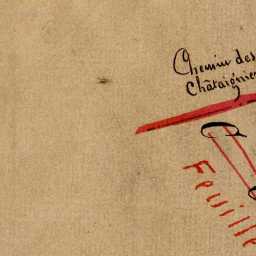 Chemin des
Châtaignie
Feuille